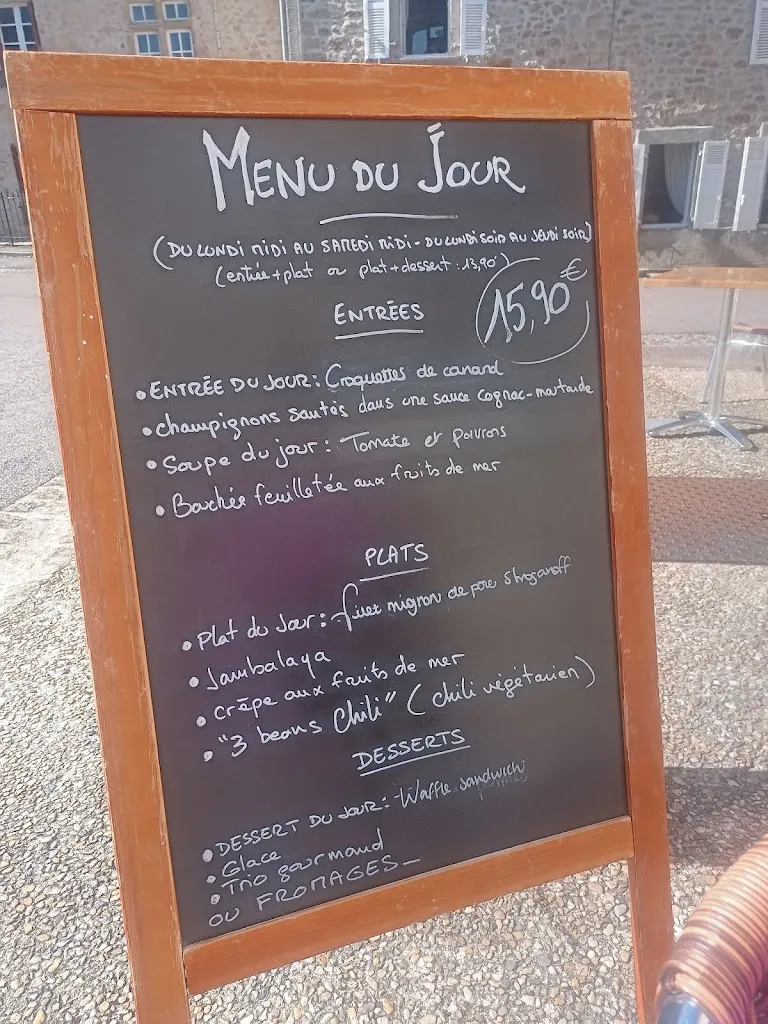 MENU DU JOUR
(DU LUNDI MIDI AU SAMEDI MIDI - DU LUNDI SOIR AU JEUDI SOIR)
(entrée+plat ou plat+dessert : 13,90)
15,90€
ENTRÉES
• ENTRÉE DU JOUR : Croquettes de canard
• champignons sautés dans une sauce cognac-moutarde
• Soupe du jour : Tomate et poivrons
• Bouchée feuilletée aux fruits de mer
PLATS
• Plat du Jour : filet mignon de porc Stroganoff
• Jambalaya
• Crêpe aux fruits de mer
• "3 beans Chili" (chili végétarien)
DESSERTS
• DESSERT DU JOUR : Waffle sandwich
• Glace
• Trio gourmand
OU FROMAGES_